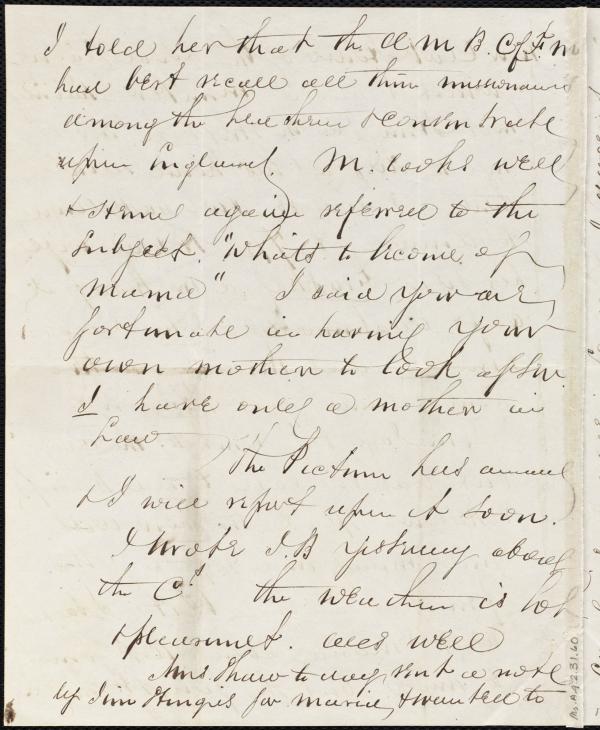 I told her that the A M B. C. f. F. M
had best recall all their missionaries
among the heathen & concentrate
upon England. M. looks well
& again referred to the
subject. "What's to become of
Mama" I said you are
fortunate in having your
own mother to look after.
I have only a mother in
Law.
The Picture has arrived
& I will report upon it soon.
I wrote J.B yesterday about
the Cs the weather is hot
& pleasant. all well
Mrs Shaw to day sent a note
by for Maria, & wanted to
Ms.A.1.2.31.60